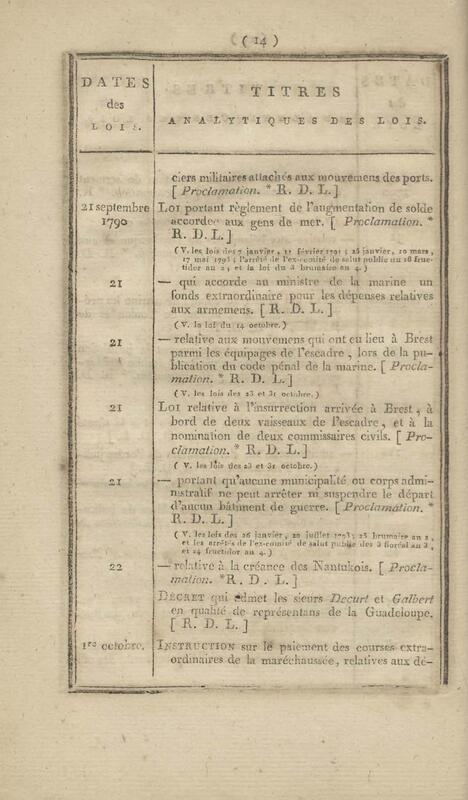 ( 14 )
DATES
des
LOIS.
TITRES
ANALYTIQUES DES LOIS.
ciers militaires attachés aux mouvemens des ports.
[ Proclamation. * R. D. L. ]
21 septembre 1790
LOI portant règlement de l'augmentation de solde
accordée aux gens de mer. [ Proclamation. *
R. D. L. ]
(V. les lois des 7 janvier, 11 février 1791 ; 25 janvier, 10 mars,
17 mai 1793 ; l'arrêté de l'ex-comité de salut public au 28 fruc-
tidor an 2 ; et la loi du 3 brumaire an 4. )
21
— qui accorde au ministre de la marine un
fonds extraordinaire pour les dépenses relatives
aux armemens. [ R. D. L. ]
( V. la loi du 14 octobre. )
21
— relative aux mouvemens qui ont eu lieu à Brest
parmi les équipages de l'escadre, lors de la pu-
blication du code pénal de la marine. [ Procla-
mation. * R. D. L. ]
( V. les lois des 23 et 31 octobre. )
21
LOI relative à l'insurrection arrivée à Brest, à
bord de deux vaisseaux de l'escadre, et à la
nomination de deux commissaires civils. [ Pro-
clamation. * R. D. L. ]
( V. les lois des 23 et 31 octobre. )
21
— portant qu'aucune municipalité ou corps admi-
nistratif ne peut arrêter ni suspendre le départ
d'aucun bâtiment de guerre. [ Proclamation. *
R. D. L. ]
(V. les lois des 26 janvier, 22 juillet 1793 ; 25 brumaire an 2,
et les arrêtés de l'ex-comité de salut public des 3 floréal an 3,
et 14 fructidor an 4. )
22
— relative à la créance des Nantukois. [ Procla-
mation. * R. D. L. ]
DÉCRET qui admet les sieurs Decurt et Galbert
en qualité de représentans de la Guadeloupe.
[ R. D. L. ]
1re octobre.
INSTRUCTION sur le paiement des courses extra-
ordinaires de la maréchaussée, relatives aux dé-